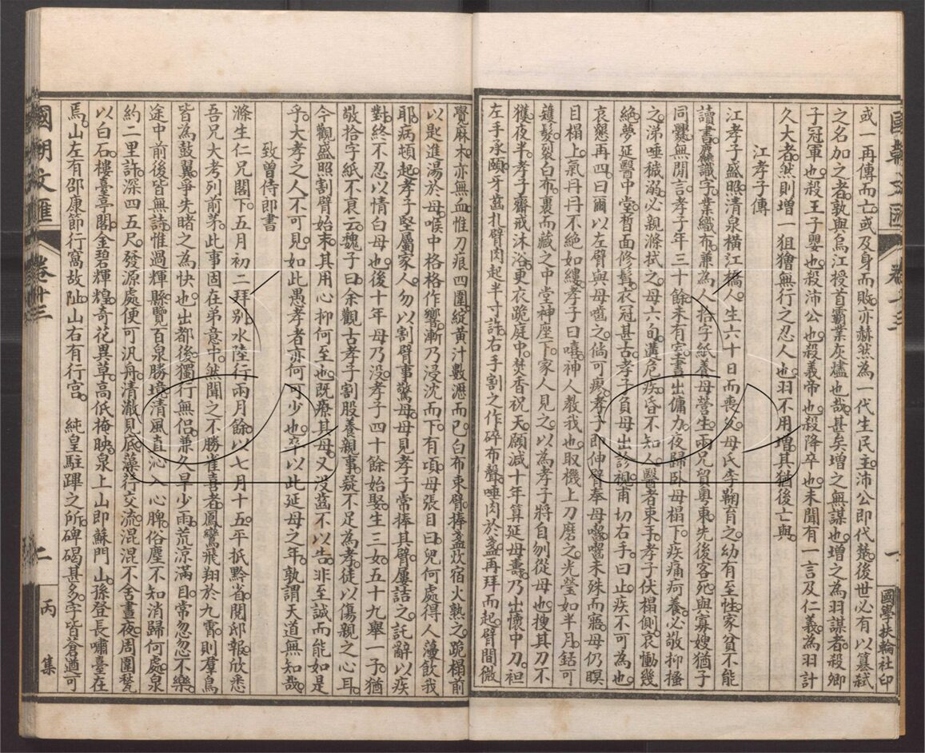 或一再傳而亡或及身而敗亦赫然為一代生民主沛公即代楚後世必有以篡弒
之名加之者孰與烏江授首霸業灰燼也哉甚矣增之無謀也增之為羽謀者殺卿
子冠軍也殺王子嬰也殺沛公也殺義帝也殺降卒也未聞有一言及仁義為羽計
久大者然則增一狙獪無行之忍人也羽不用增其猶後亡與
江孝子傳
江孝子盛照清泉橫江橋人生六十日而喪父母氏李鞠育之幼有至性家貧不能
讀書麤識字業織布兼為人拾字紙養母營生兩兄貿粵東先後客死與寡嫂猶子
同爨無閒言孝子年三十餘未有室晝出傭力夜歸臥母榻下疾痛疴養必敬抑搔
之涕唾穢溺必親滌拭之母六旬遘危疾昏不知人醫者束手孝子伏榻側哀慟幾
絶夢延醫中堂晳面修髯衣冠甚古孝子負母出診視甫切右手曰止疾不可為也
哀懇再四曰爾以左臂與母噬之儻可瘳孝子即伸臂奉母囓囓未殊而寤母仍瞑
目榻上氣丹丹不絶如縷孝子曰嘻神人教我也取機上刀磨之光瑩如半月銛可
薙髮裂白布裹而藏之中堂神座下家人見之以為孝子將自刎從母也搜其刀不
獲夜半孝子齋戒沐浴更衣跪庭中焚香祝天願減十年算延母壽乃出懷中刀袒
左手承頤牙齧扎臂肉起半寸許右手割之作碎布聲唾肉於盞再拜而起臂間微
覺麻木亦無血惟刀痕四圍綻黃汁數瀝而已白布束臂捧盞炊宿火熟之跪榻前
以匙進湯於母喉中格格作響漸乃浸沈而下有頃母張目曰兒何處得人薓飲我
耶病頓起孝子堅屬家人勿以割臂事驚母母見孝子常捧其臂屢詰之託辭以疾
對終不忍以情白母也後十年母乃沒孝子四十餘始娶生三女五十九舉一子猶
敬拾字紙不衰云魏子曰余觀古孝子割股養親事疑不足為孝徒以傷親之心耳
今觀盛照割臂始末其用心抑何至也既療其母又沒齒不以告非至誠而能如是
乎大孝之人不可見如此愚孝者亦何可少也卒以此延母之年孰謂天道無知哉
致曾侍郎書
滌生仁兄閣下五月初二拜別水陸行兩月餘以七月十五平抵黔省閱邸報欣悉
吾兄大考列前茅此事固在弟意中然聞之不勝雀喜者鳳鸞飛翔於九霄則羣鳥
皆為鼓翼爭先睹之為快也出都後獨行無侶兼久旱少雨荒涼滿目常忽忽不樂
途中前後皆無詩惟過輝縣覽百泉勝境清風直沁入心脾俗塵不知消歸何處泉
約二里許深四五尺發源處便可汎舟清澈見底藻行交流混混不舍晝夜周圍甃
以白石樓臺亭閣金碧輝煌奇花異草高低掩映泉上山即蘇門山孫登長嘯臺在
焉山左有邵康節行窩故阯山右有行宮 純皇駐蹕之所碑碣甚多字皆蒼遒可
國朝文匯 卷十三 一 國學扶輪社印
國朝文匯 卷十三 二 丙集